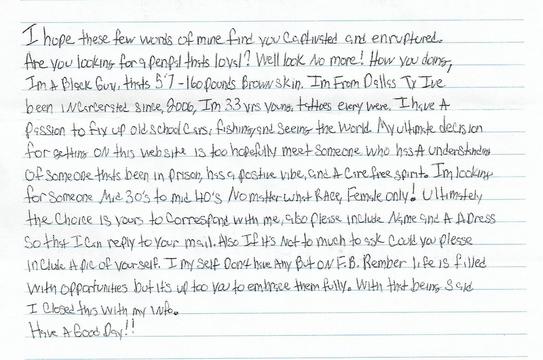 I hope these few words of mine find you Captivated and enruptured.
Are you looking for a penpal thats loyal? Well look No more! How you doing,
I'm A Black Guy, thats 5'7 - 160 pounds Brown skin. I'm From Dallas Tx I've
been incarcerated since, 2006, I'm 33 yrs young, tattoes every were. I have A
Passion to fix up old school Cars, fishing, and seeing the World. My ultimate decision
for getting on this website is too hopefully meet someone who has A understanding
of someone thats been in prison, has a postive vibe, and A Care free spirit. I'm looking
for someone Mid 30's to mid 40's No matter what RAce, Female only! Ultimately
the Choice is yours to Correspond with me, also please include Name and A ADress
So that I Can reply to your mail. Also If it's Not to much to ask Could you please
include A pic of yourself. I my self Don't have Any But on F.B. Rember life is filled
with opportunities but it's up too you to embrace them fully. With that being said
I Closed this with my info.
Have A Good Day!!